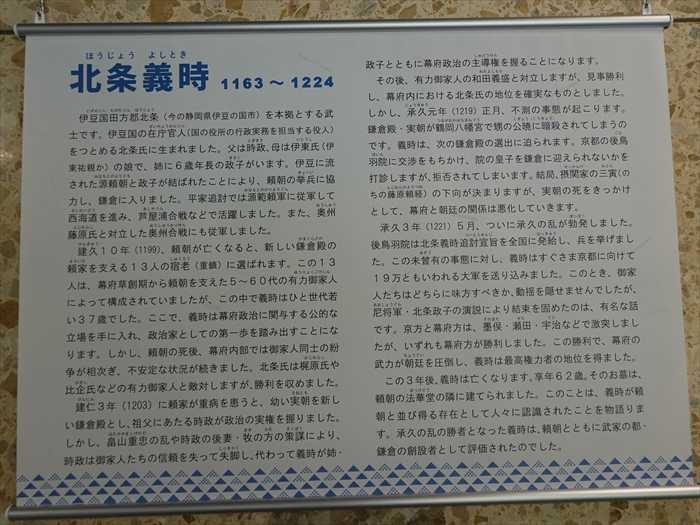 ほうじょう よしとき
北条義時 1163～1224
伊豆国田方郡北条（今の静岡県伊豆の国市）を本拠とする武
士です。伊豆国の在庁官人（国の役所の行政実務を担当する役人）
をつとめる北条氏に生まれました。父は時政、母は伊東氏（伊
東祐親か）の娘で、姉に６歳年長の政子がいます。伊豆に流
された源頼朝と政子が結ばれたことにより、頼朝の挙兵に協
力し、鎌倉に入りました。平家追討では源範頼軍に従軍して
西海道を進み、芦屋浦合戦などで活躍しました。また、奥州
藤原氏と対立した奥州合戦にも従軍しました。
建久１０年（1199）、頼朝が亡くなると、新しい鎌倉殿の
頼家を支える１３人の宿老（重鎮）に選ばれます。この１３
人は、幕府草創期から頼朝を支えた５～６０代の有力御家人
によって構成されていましたが、この中で義時はひと世代若
い３７歳でした。ここで、義時は幕府政治に関与する公的な
立場を手に入れ、政治家としての第一歩を踏み出すことにな
ります。しかし、頼朝の死後、幕府内部では御家人同士の紛
争が相次ぎ、不安定な状況が続きました。北条氏は梶原氏や
比企氏などの有力御家人と敵対しますが、勝利を収めました。
建仁３年（1203）に頼家が重病を患うと、幼い実朝を新し
い鎌倉殿とし、祖父にあたる時政が政治の実権を握りました。
しかし、畠山重忠の乱や時政の後妻・牧の方の策謀により、
時政は御家人たちの信頼を失って失脚し、代わって義時が姉・
政子とともに幕府政治の主導権を握ることになります。
その後、有力御家人の和田義盛と対立しますが、見事勝利
し、幕府内における北条氏の地位を確実なものとしました。
しかし、承久元年（1219）正月、不測の事態が起こります。
鎌倉殿・実朝が鶴岡八幡宮で甥の公暁に暗殺されてしまうの
です。義時は、次の鎌倉殿の選出に迫られます。京都の後鳥
羽院に交渉をもちかけ、院の皇子を鎌倉に迎えられないかを
打診しますが、拒否されてしまいます。結局、摂関家の三寅（の
ちの藤原頼経）の下向が決まりますが、実朝の死をきっかけ
として、幕府と朝廷の関係は悪化していきます。
承久３年（1221）５月、ついに承久の乱が勃発しました。
後鳥羽院は北条義時追討宣旨を全国に発給し、兵を挙げまし
た。この未曽有の事態に対し、義時はすぐさま京都に向けて
１９万ともいわれる大軍を送り込みました。このとき、御家
人たちはどちらに味方すべきか、動揺を隠せませんでしたが、
尼将軍・北条政子の演説により結束を固めたのは、有名な話
です。京方と幕府方は、墨俣・瀬田・宇治などで激突しまし
たが、いずれも幕府方が勝利しました。この勝利で、幕府の
武力が朝廷を圧倒し、義時は最高権力者の地位を得ました。
この３年後、義時は亡くなります。享年６２歳。そのお墓は、
頼朝の法華堂の隣に建てられました。このことは、義時が頼
朝と並び得る存在として人々に認識されたことを物語りま
す。承久の乱の勝者となった義時は、頼朝とともに武家の都・
鎌倉の創設者として評価されたのでした。